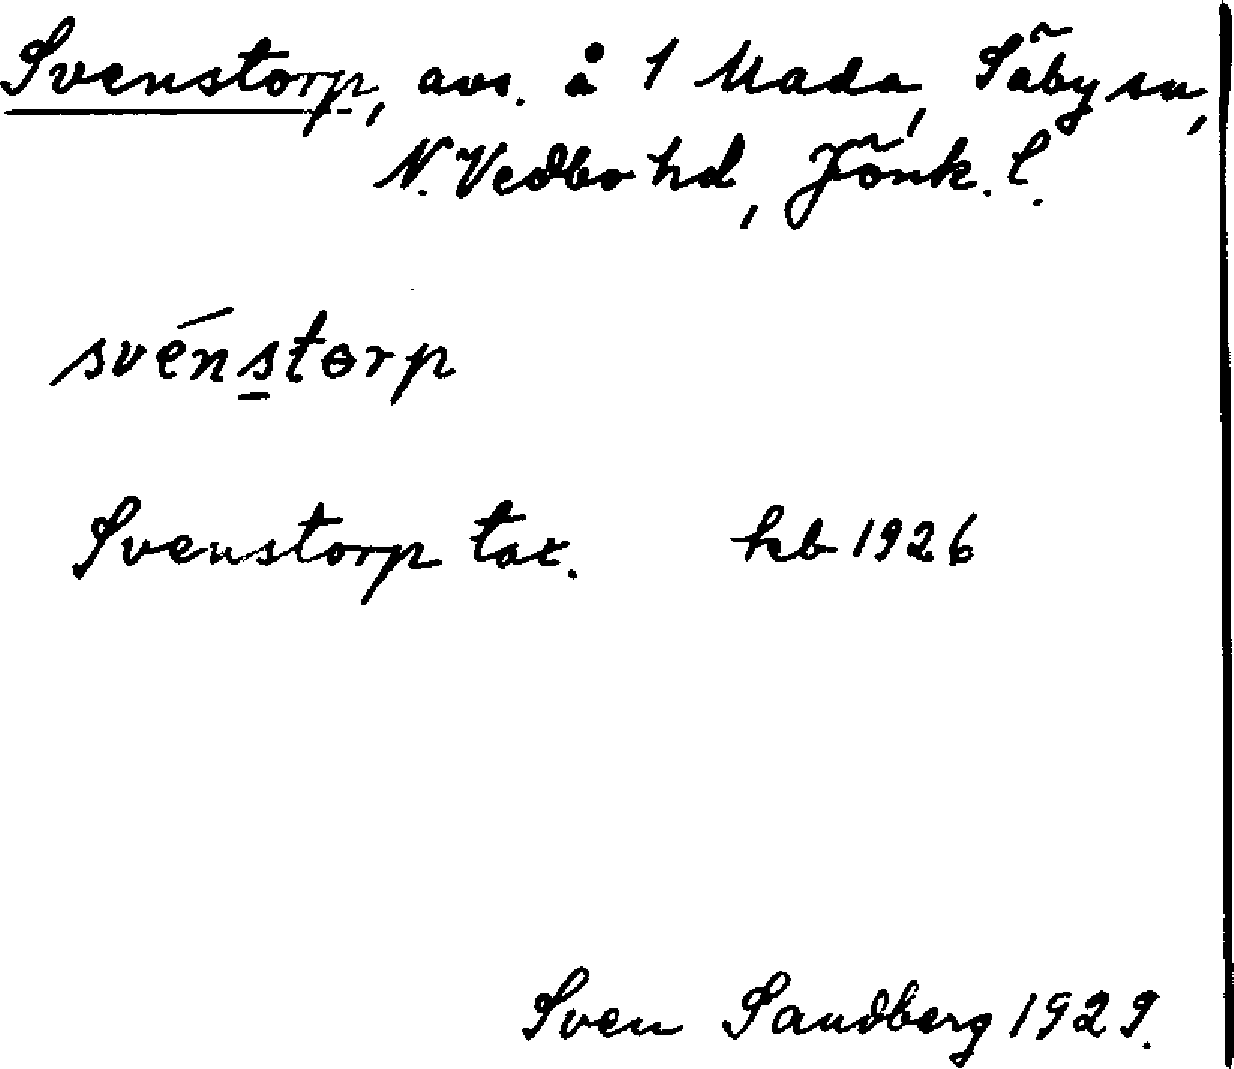 Svenstorp, avs. å 1 Mada, Säby sn,
N. Vedbo hd, Jönk. l.
svénstɵrp
Svenstorp tax. kb 1926
Sven Sandberg 1929.